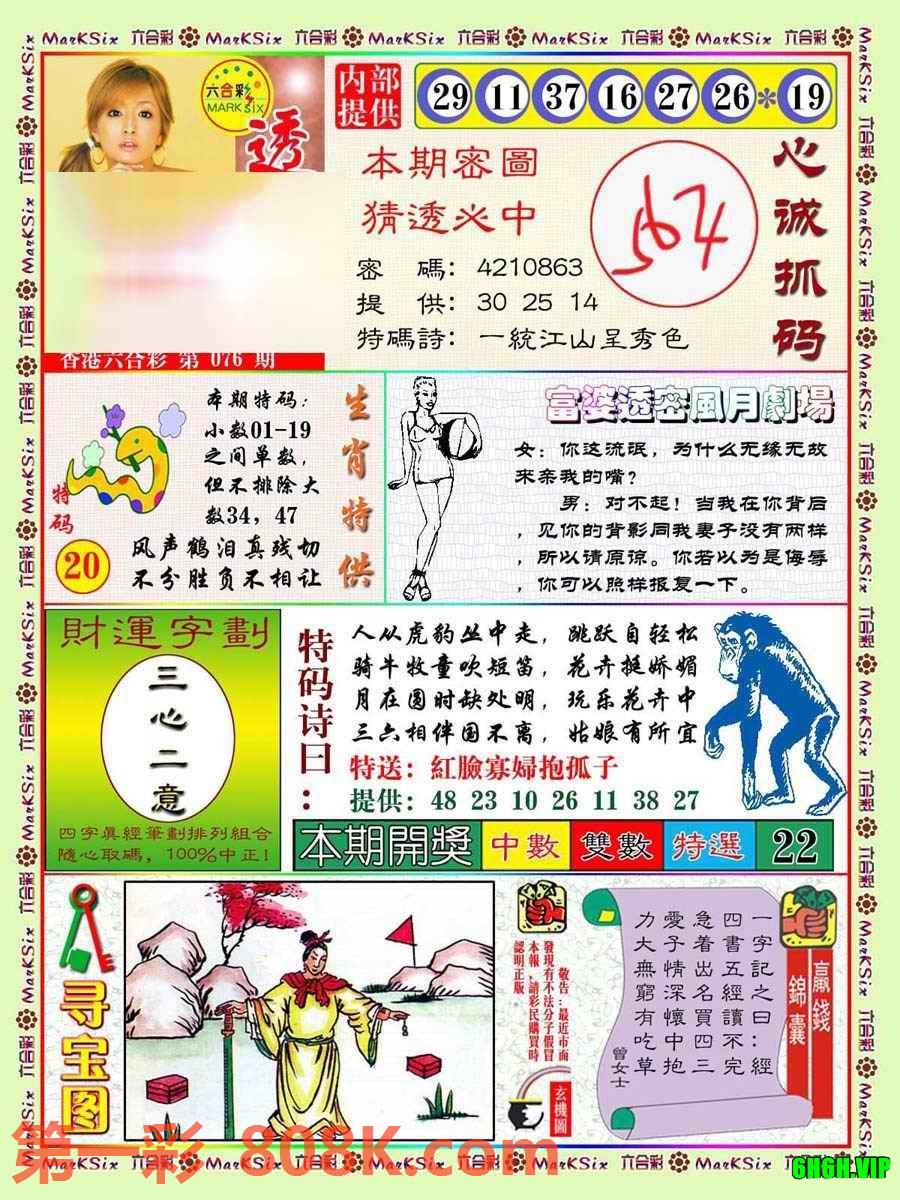 MarKSix 六合彩 MarKSix 六合彩 MarKSix 六合彩 MarKSix 六合彩 MarKSix 六合彩
六合彩
MARK SIX
透
内部
提供
29 11 37 16 27 26 * 19
本期密圖
猜透必中
密 碼: 4210863
提 供: 30 25 14
特碼詩: 一統江山呈秀色
心诚抓码
香港六合彩 第 076 期
本期特码:
小数01-19
之间单数,
但不排除大
数34, 47
特码
20
风声鹤泪真残切
不分胜负不相让
生肖特供
富婆透密風月劇場
女: 你这流氓, 为什么无缘无故
來亲我的嘴?
男: 对不起! 当我在你背后
, 见你的背影同我妻子没有两样
, 所以请原谅。你若以为是侮辱
, 你可以照样报复一下。
財運字劃
三心二意
四字真經筆劃排列組合
隨心取碼, 100%中正!
特码诗曰:
人从虎豹丛中走, 跳跃自轻松
骑牛牧童吹短笛, 花卉挺娇媚
月在圆时缺处明, 玩乐花卉中
三六相伴国不离, 姑娘有所宜
特送: 紅臉寡婦抱孤子
提供: 48 23 10 26 11 38 27
本期開獎 中數 雙數 特選 22
寻宝图
敬告:最近市面
發現有不法分子假冒
本報,請彩民購買時
認明正版。
玄機圖
贏錢
錦囊
一字記之曰:經
四書五經讀不完
急着出名買四三
愛子情深懷中抱
力大無窮有吃草
曾女士
第一彩 808K.com
MarKSix 六合彩 MarKSix 六合彩 MarKSix 六合彩 MarKSix 六合彩 MarKSix 六合彩
6H6H.VIP